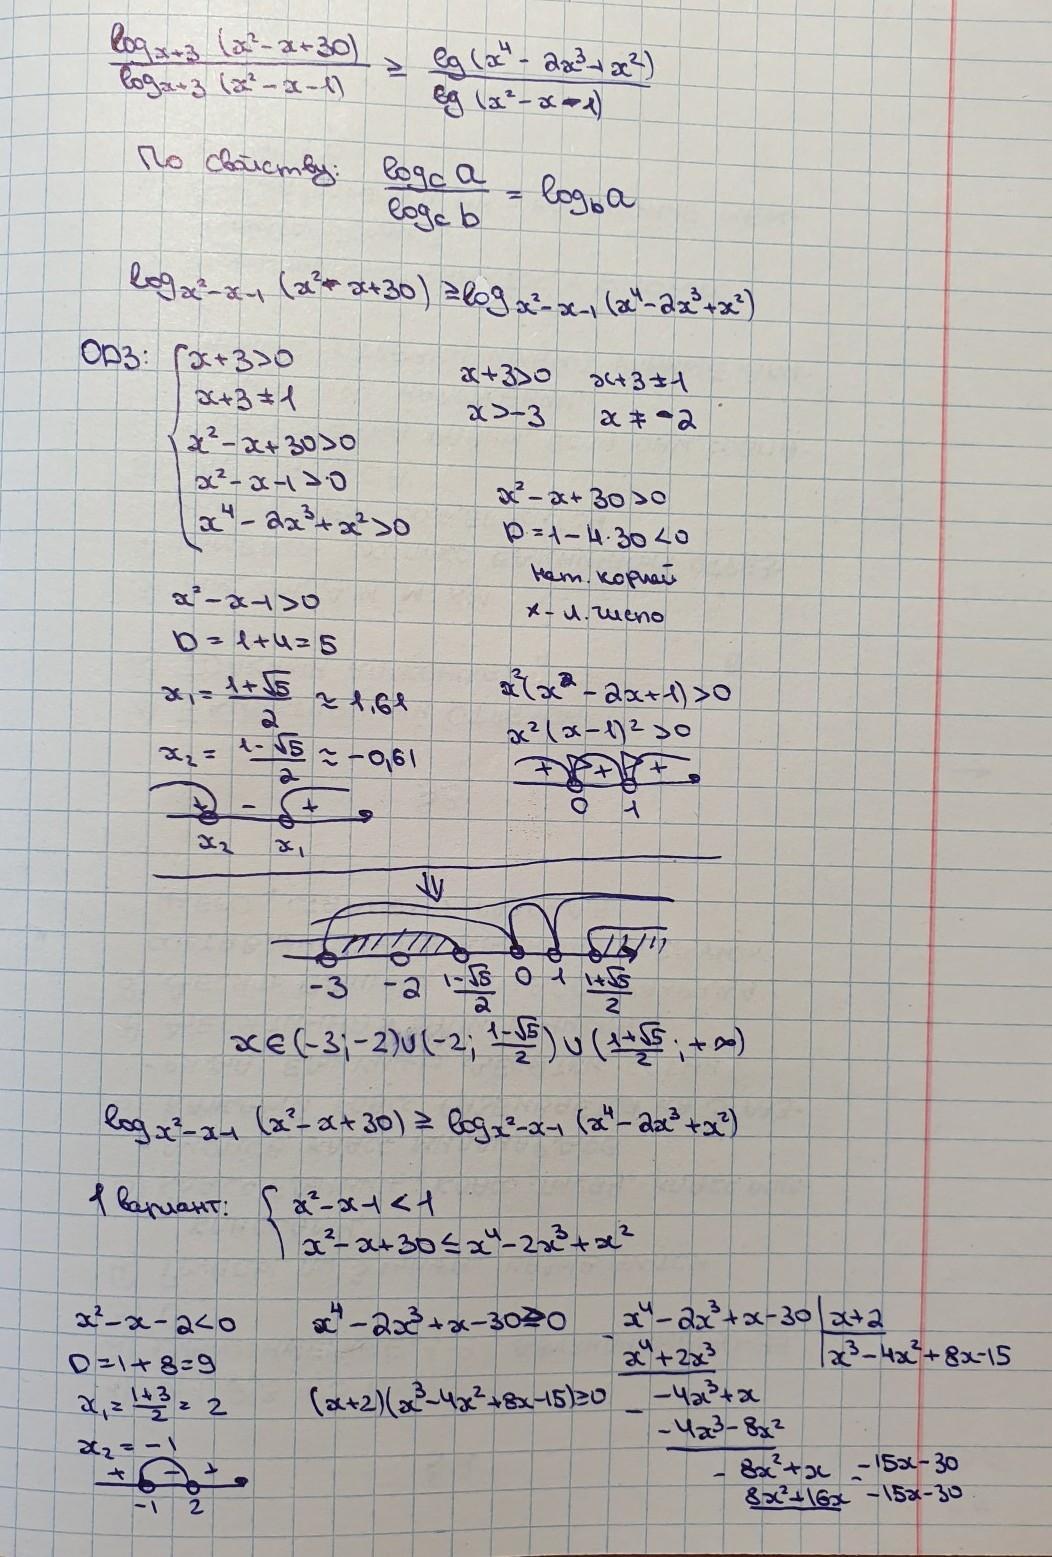 log_{x+3} (x² - x + 30) / log_{x+3} (x² - x - 1) ≥ lg (x⁴ - 2x³ + x²) / lg (x² - x - 1)
По свойству: log_c a / log_c b = log_b a
log_{x²-x-1} (x² - x + 30) ≥ log_{x²-x-1} (x⁴ - 2x³ + x²)
ОДЗ: { x + 3 > 0
x + 3 ≠ 1
x² - x + 30 > 0
x² - x - 1 > 0
x⁴ - 2x³ + x² > 0
x + 3 > 0 x + 3 ≠ 1
x > -3 x ≠ -2
x² - x + 30 > 0
D = 1 - 4·30 < 0
нет. корней
x - л. число
x² - x - 1 > 0
D = 1 + 4 = 5
x₁ = (1+√5)/2 ≈ 1,61
x₂ = (1-√5)/2 ≈ -0,61
+ - +
x₂ x₁
x²(x² - 2x + 1) > 0
x²(x - 1)² > 0
+ + +
0 1
⇓
-3 -2 (1-√5)/2 0 1 (1+√5)/2
x ∈ (-3; -2) ∪ (-2; (1-√5)/2) ∪ ((1+√5)/2; +∞)
log_{x²-x-1} (x² - x + 30) ≥ log_{x²-x-1} (x⁴ - 2x³ + x²)
1 вариант: { x² - x - 1 < 1
x² - x + 30 ≤ x⁴ - 2x³ + x²
x² - x - 2 < 0
D = 1 + 8 = 9
x₁ = (1+3)/2 = 2
x₂ = -1
+ - +
-1 2
x⁴ - 2x³ + x - 30 ≥ 0
(x+2)(x³ - 4x² + 8x - 15) ≥ 0
- x⁴ - 2x³ + x - 30 | x + 2
x⁴ + 2x³ | x³ - 4x² + 8x - 15
- -4x³ + x
-4x³ - 8x²
- 8x² + x - -15x - 30
8x² + 16x -15x - 30